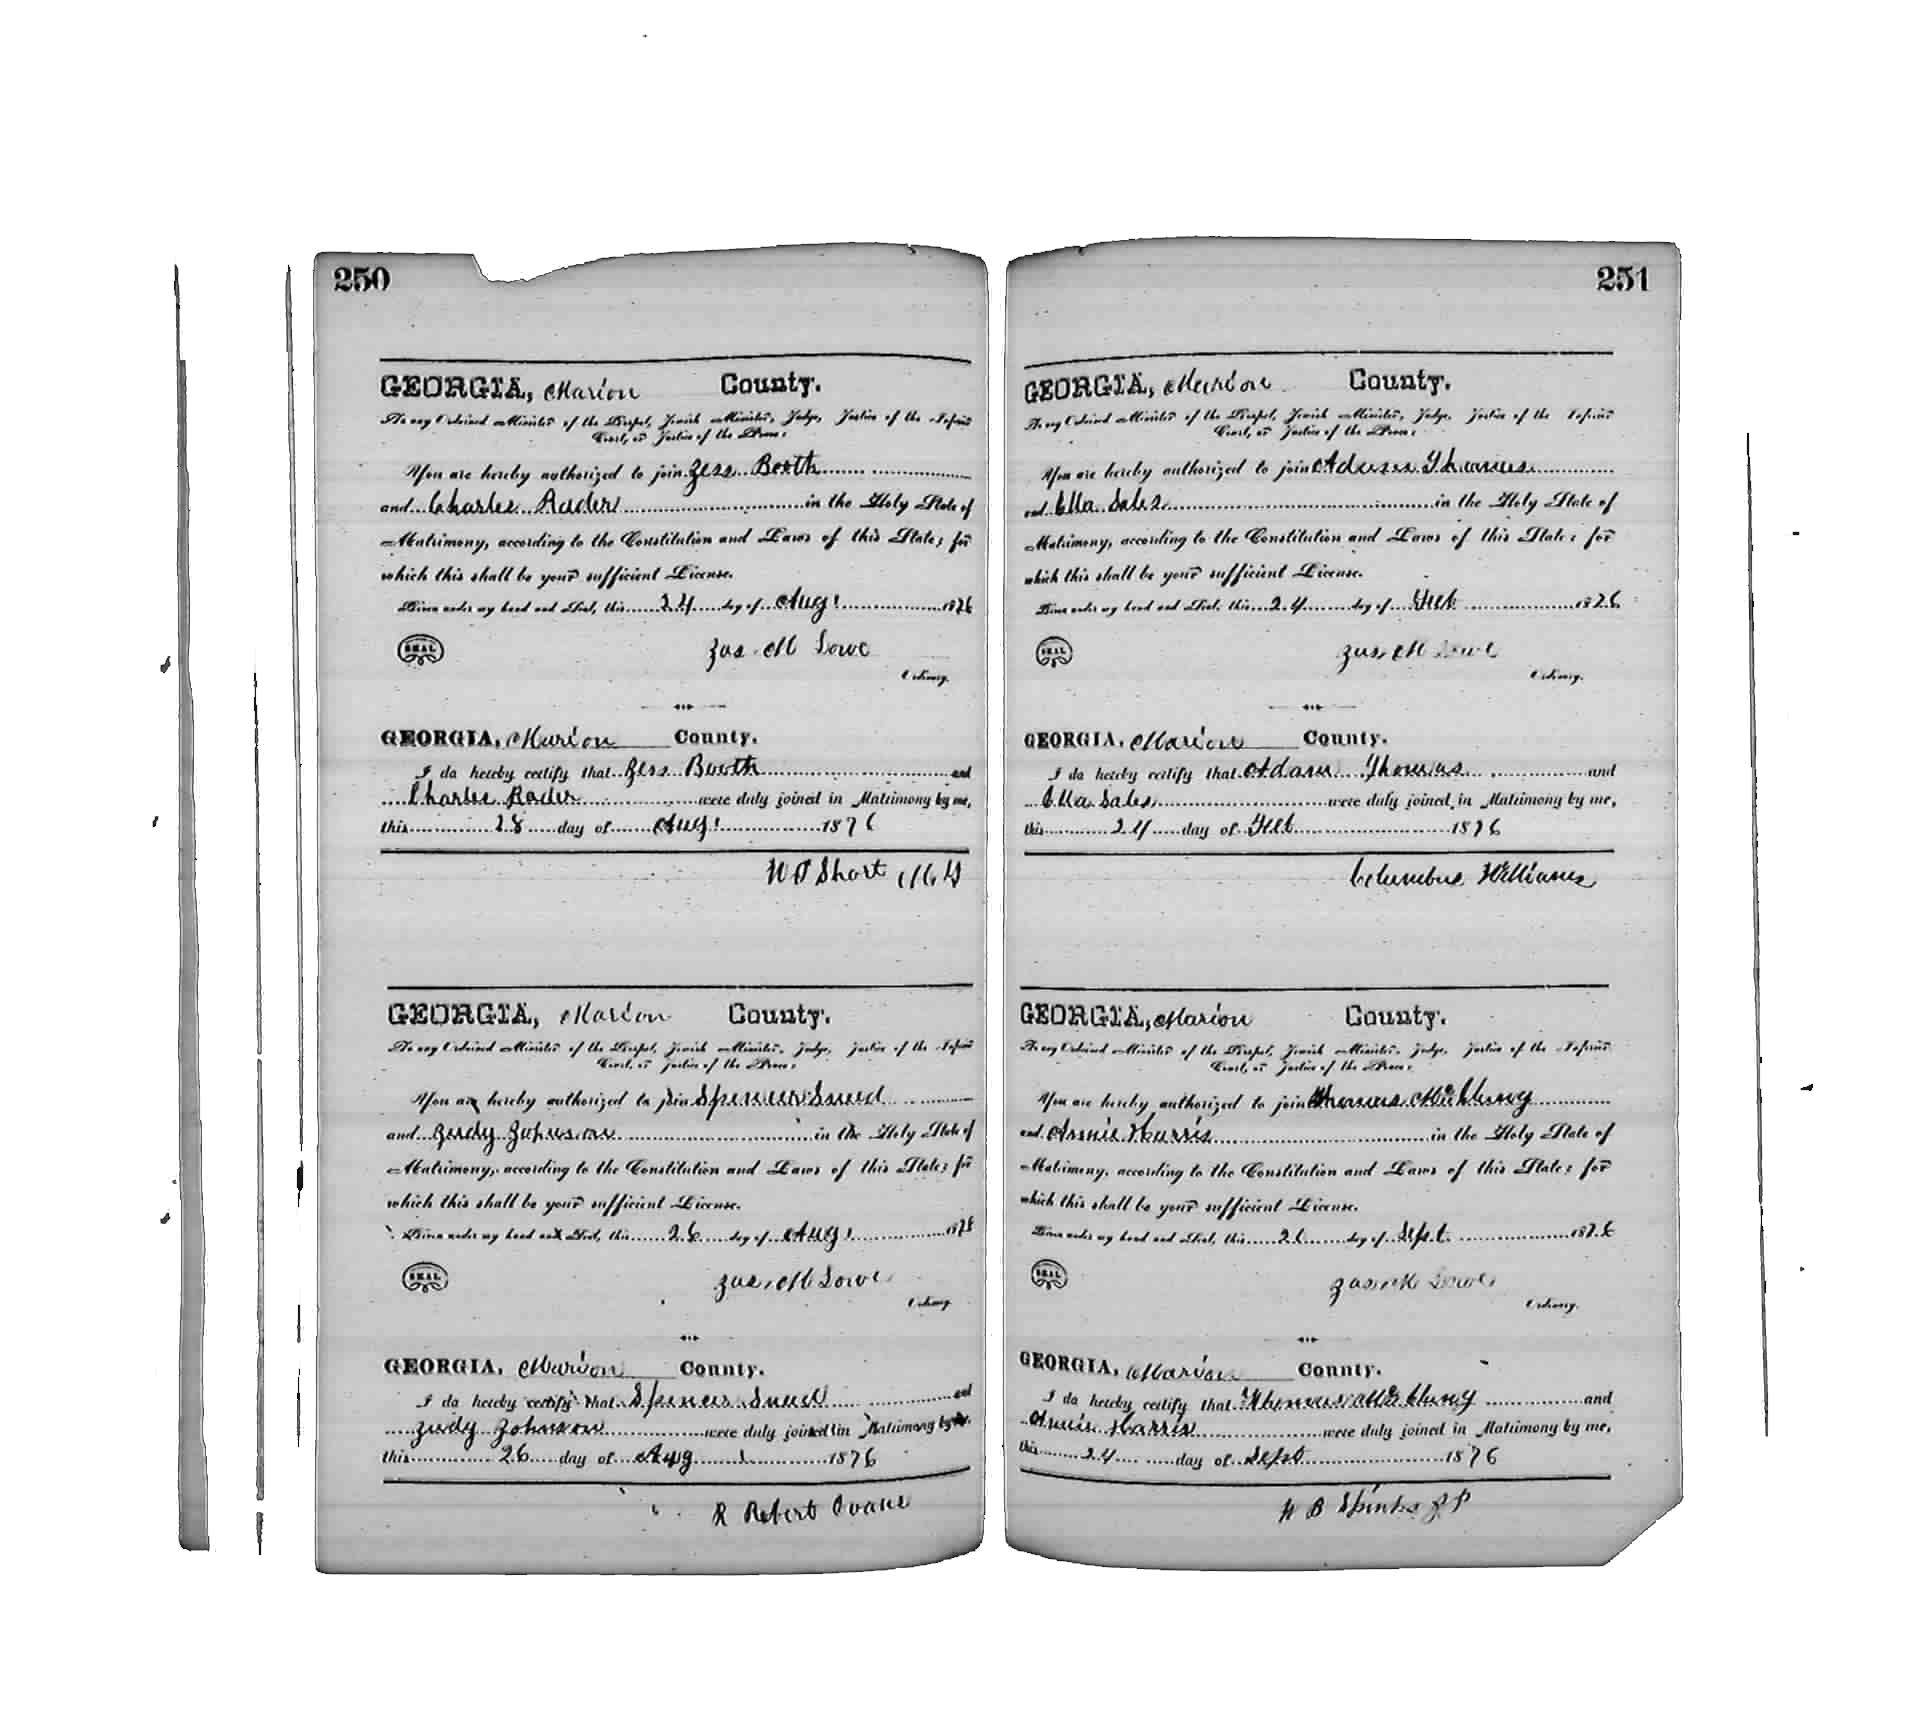 250
GEORGIA, Marion County.
To any Ordained Minister of the Gospel, Jewish Minister, Judge, Justice of the Inferior
Court, or Justice of the Peace:
You are hereby authorized to join Jess Booth
and Charles Rader in the Holy State of
Matrimony, according to the Constitution and Laws of this State; for
which this shall be your sufficient License.
Given under my hand and Seal, this 24 day of Aug 1876
SEAL Jas. M Lowe
Ordinary.
GEORGIA, Marion County.
I do hereby certify that Jess Booth and
Charles Rader were duly joined in Matrimony by me,
this 28 day of Aug 1876
Short M G
GEORGIA, Marion County.
To any Ordained Minister of the Gospel, Jewish Minister, Judge, Justice of the Inferior
Court, or Justice of the Peace:
You are hereby authorized to join Spencer Sneed
and Judy Johnson in the Holy State of
Matrimony, according to the Constitution and Laws of this State; for
which this shall be your sufficient License.
Given under my hand and Seal, this 26 day of Aug 1876
SEAL Jas. M Lowe
Ordinary.
GEORGIA, Marion County.
I do hereby certify that Spencer Sneed and
Judy Johnson were duly joined in Matrimony by me.
this 26 day of Aug 1876
R Robert Evans
251
GEORGIA, Marion County.
To any Ordained Minister of the Gospel, Jewish Minister, Judge, Justice of the Inferior
Court, or Justice of the Peace:
You are hereby authorized to join Adam Thomas
and Ella Sales in the Holy State of
Matrimony, according to the Constitution and Laws of this State; for
which this shall be your sufficient License.
Given under my hand and Seal, this 24 day of Feb 1876
SEAL Jas. M Lowe
Ordinary.
GEORGIA, Marion County.
I do hereby certify that Adam Thomas and
Ella Sales were duly joined in Matrimony by me,
this 24 day of Feb 1876
Columbus Williams
GEORGIA, Marion County.
To any Ordained Minister of the Gospel, Jewish Minister, Judge, Justice of the Inferior
Court, or Justice of the Peace:
You are hereby authorized to join Thomas McClung
and Annie Harris in the Holy State of
Matrimony, according to the Constitution and Laws of this State; for
which this shall be your sufficient License.
Given under my hand and Seal, this day of Sept. 1876
SEAL Jas. M Lowe
Ordinary.
GEORGIA, Marion County.
I do hereby certify that Thomas McClung and
Annie Harris were duly joined in Matrimony by me,
this 24 day of Sept 1876
B Spinks J P